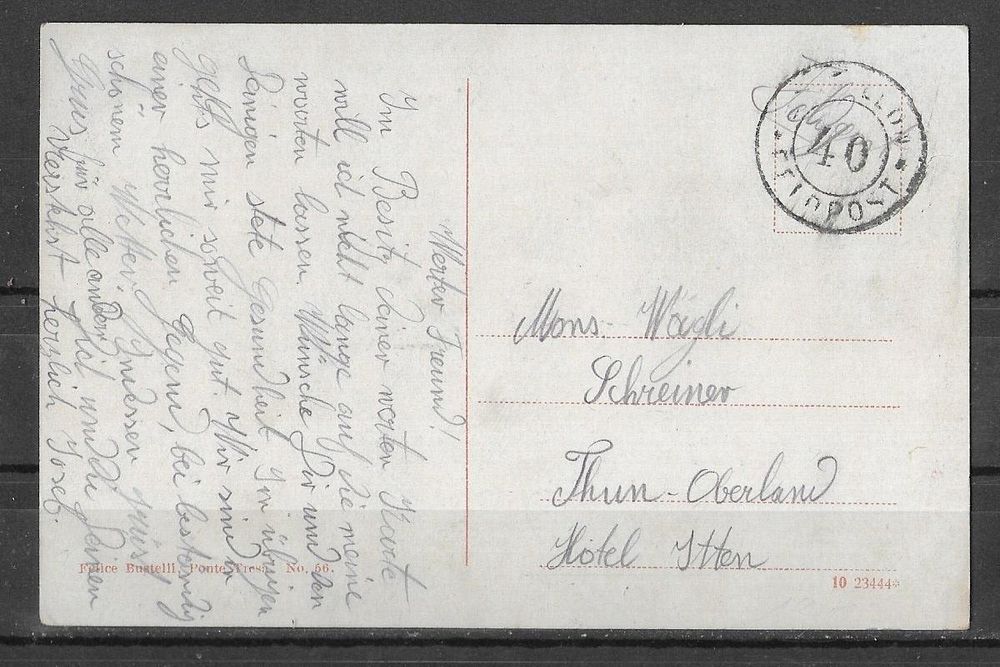 Werter Freund!
Im Besitz deiner werten Karte
will ich nicht lange auf die meine
warten lassen. Wünsche Dir und den
Deinigen stete Gesundheit. Im übrigen
gehts mir soweit gut. Wir sind in
einer herrlichen Gegend, bei beständig
schönem Wetter. Indessen grüsst
Grüss für alle andern Dich und die Deinen
herzlich Josef.
BATAILLON
40
* FELDPOST *
Mons. Wägli
Schreiner
Thun-Oberland
Hôtel Itten
Felice Bustelli, Ponte Tresa. No. 56.
10 23444*